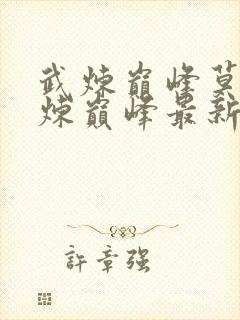 武煉巔峰莫
煉巔峰最新
許章強